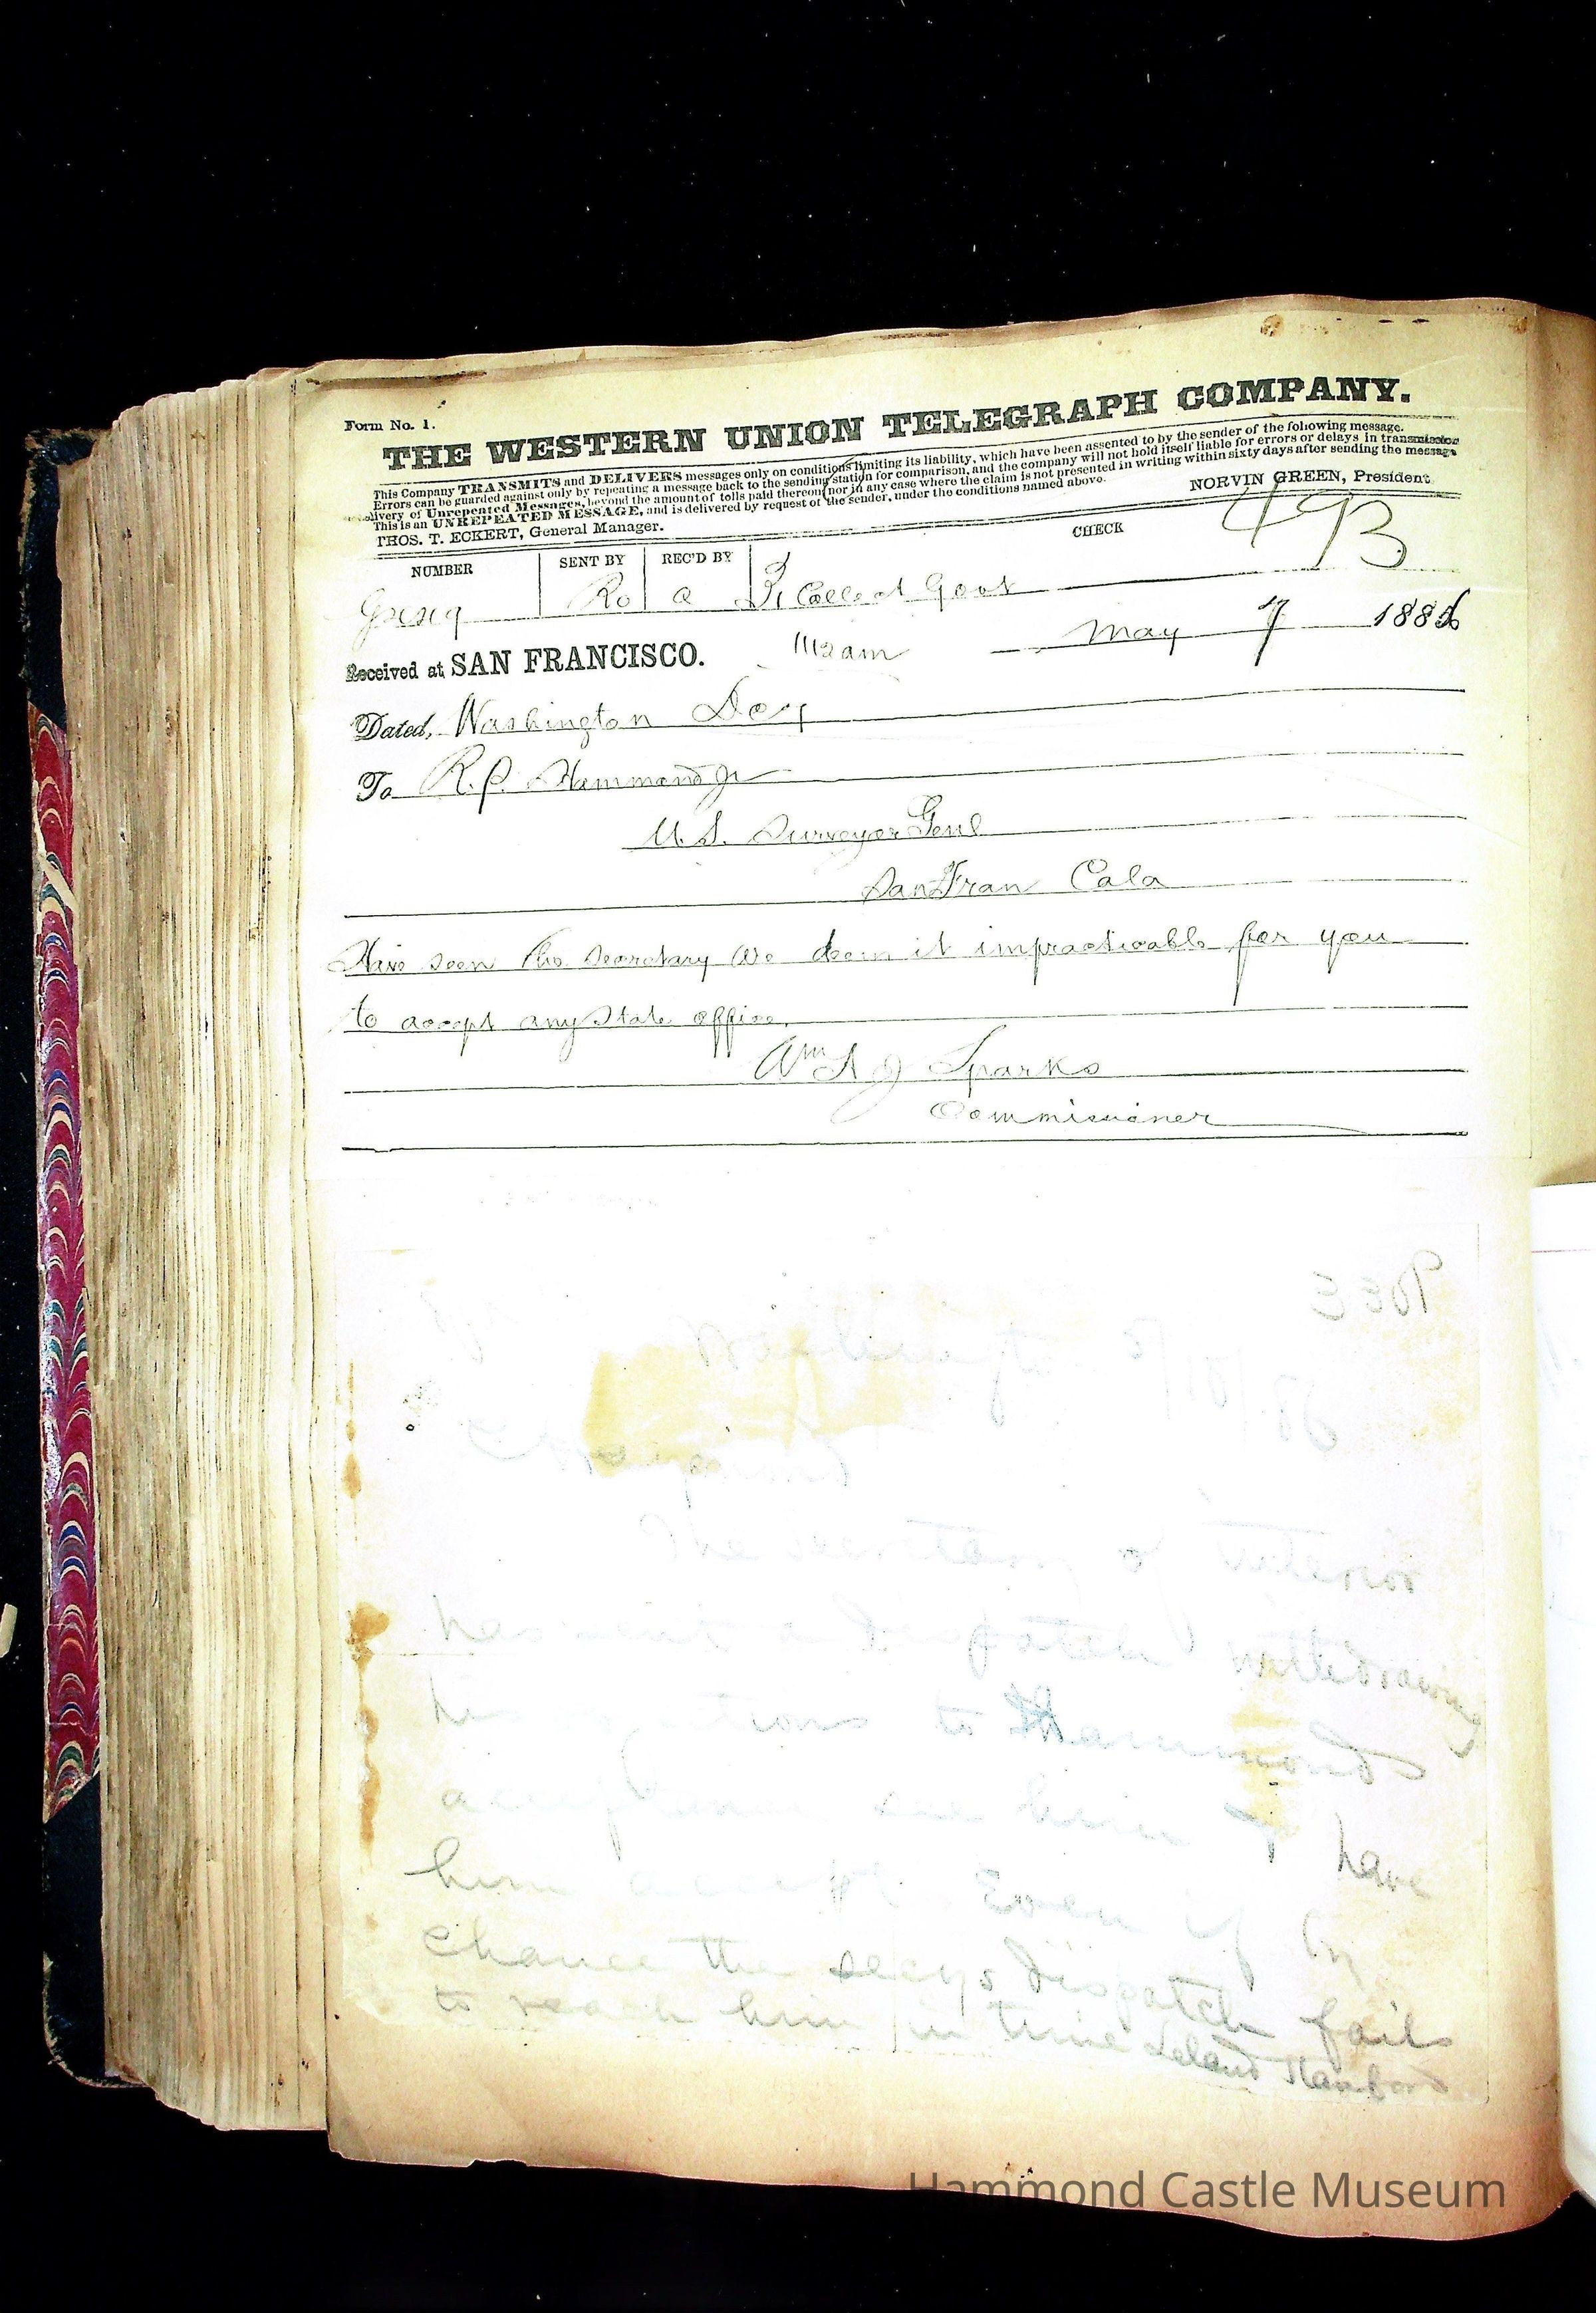 Form No. 1.
THE WESTERN UNION TELEGRAPH COMPANY.
This Company TRANSMITS and DELIVERS messages only on conditions limiting its liability, which have been assented to by the sender of the following message.
Errors can be guarded against only by repeating a message back to the sending station for comparison, and the company will not hold itself liable for errors or delays in transmission
delivery of Unrepeated Messages, beyond the amount of tolls paid thereon, nor in any case where the claim is not presented in writing within sixty days after sending the message
This is an UNREPEATED MESSAGE, and is delivered by request of the sender, under the conditions named above.
THOS. T. ECKERT, General Manager. NORVIN GREEN, President
NUMBER SENT BY REC'D BY CHECK
Ro a Collect Govt
Received at SAN FRANCISCO. 1112am May 7 1886
Dated, Washington DC
To R. P. Hammond Jr
U.S. Surveyor Genl
San Fran Cala
Have seen the Secretary We deem it impracticable for you
to accept any State office.
Wm A J Sparks
Commissioner
Washington
The secretary of Interior
has sent a dispatch withdrawing
to Hammonds
acceptance see him & have
him accept Even if by
chance the secys dispatch fails
to reach him in time Leland Stanford
Hammond Castle Museum